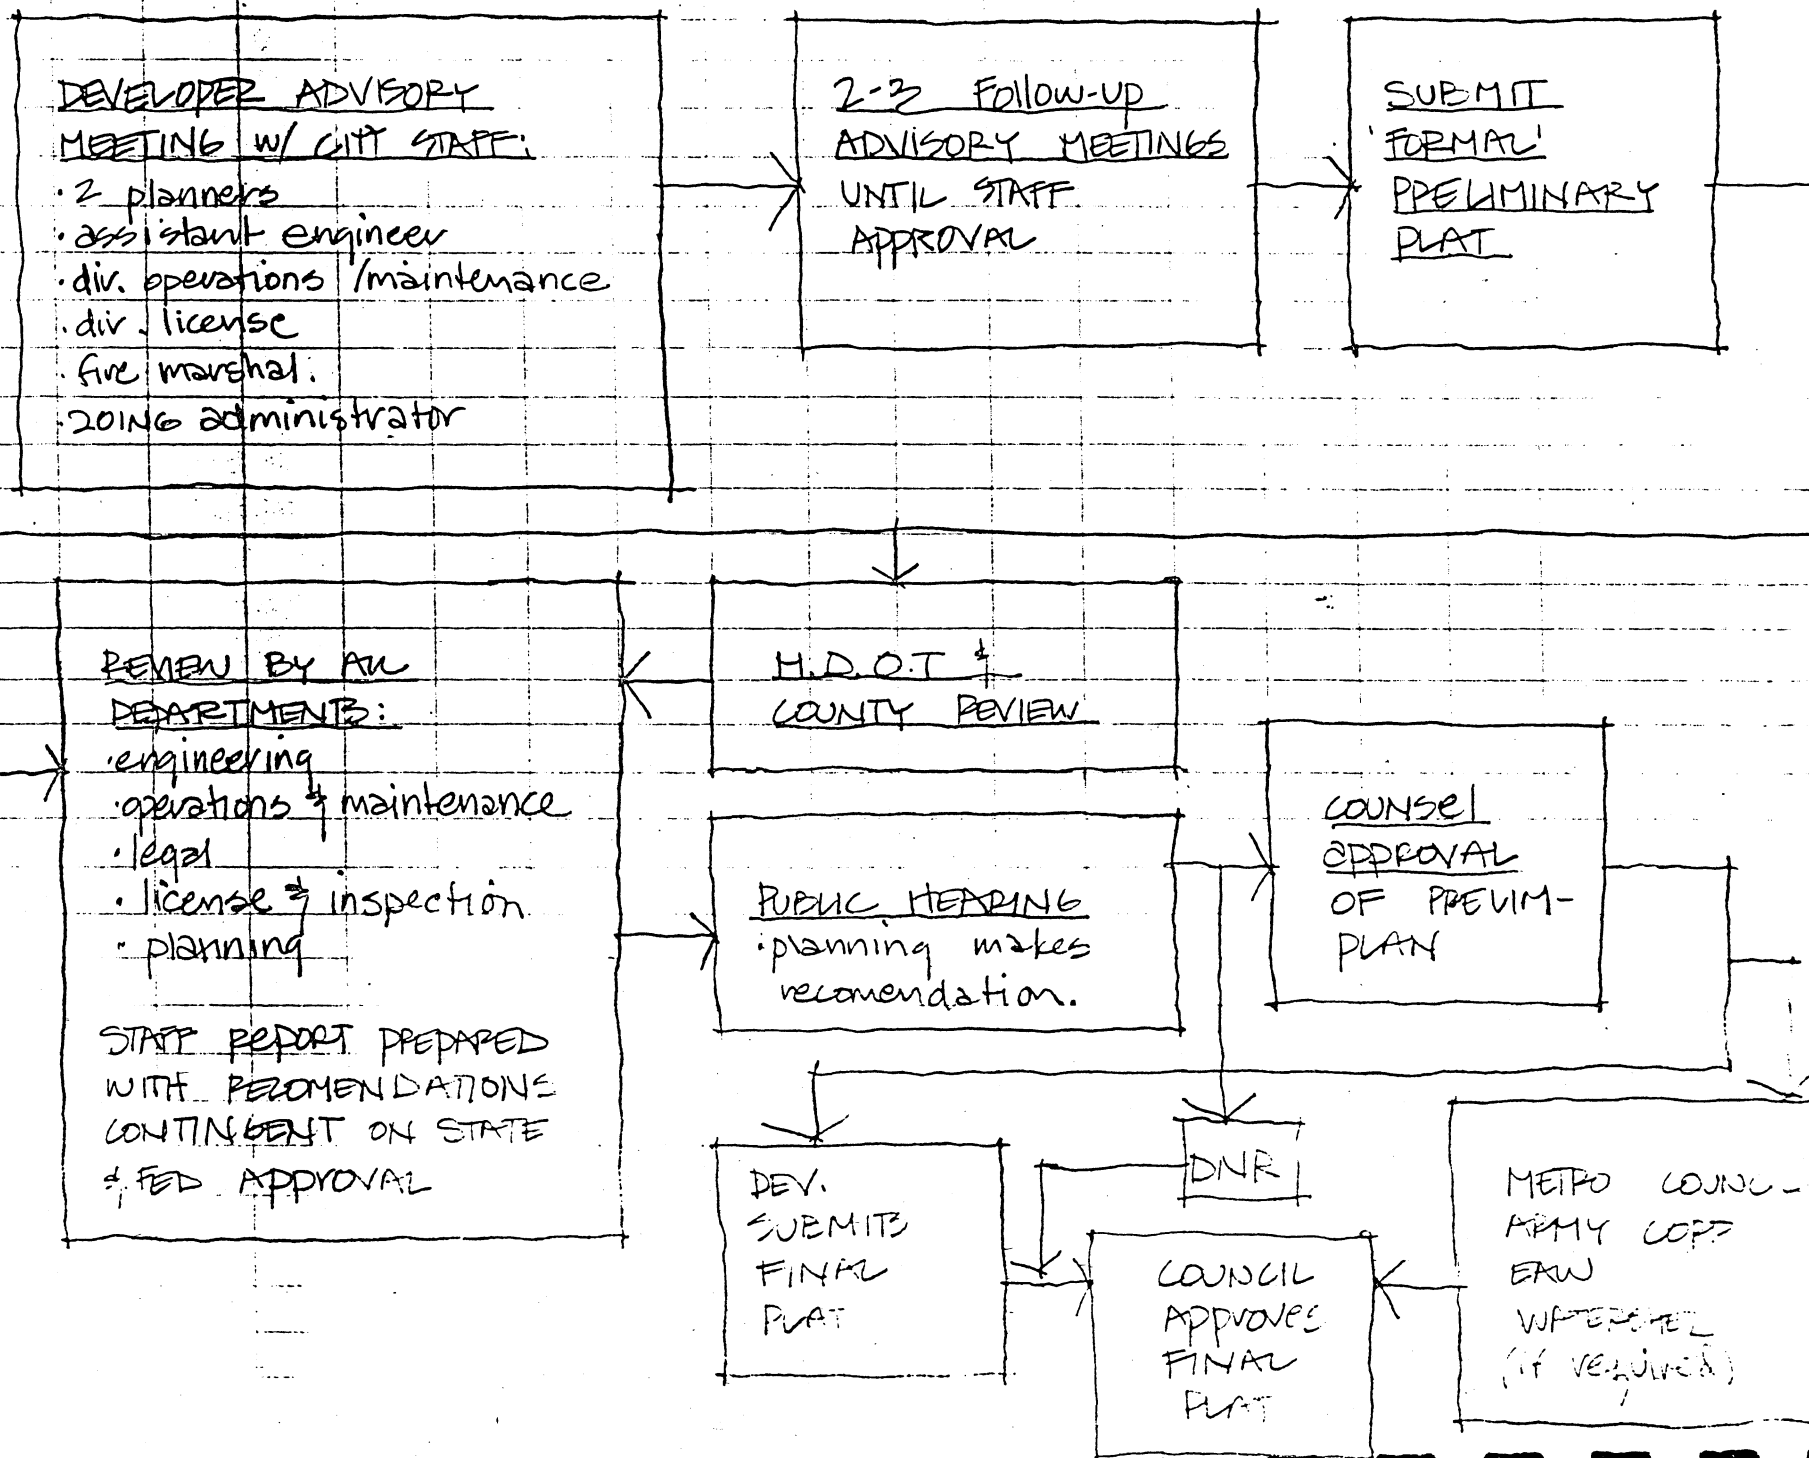 DEVELOPER ADVISORY
MEETING W/ CITY STAFF:
· 2 planners
· assistant engineer
· div. operations /maintenance
· div. license
· fire marshal.
· ZOING administrator
2-3 Follow-up
ADVISORY MEETINGS
UNTIL STAFF
APPROVAL
SUBMIT
'FORMAL'
PRELIMINARY
PLAT
REVIEW BY ALL
DEPARTMENTS:
· engineering
· operations & maintenance
· legal
· license & inspection
· planning
STAFF REPORT PREPARED
WITH RECOMENDATIONS
CONTINGENT ON STATE
& FED APPROVAL
M.D.O.T &
COUNTY REVIEW
PUBLIC HEARING
· planning makes
recomendation.
COUNSEL
APPROVAL
OF PRELIM-
PLAN
DEV.
SUBMITS
FINAL
PLAT
DNR
COUNCIL
APPROVES
FINAL
PLAT
METRO COUNC-
ARMY COPS
EAW
WATERSHED
(if required)